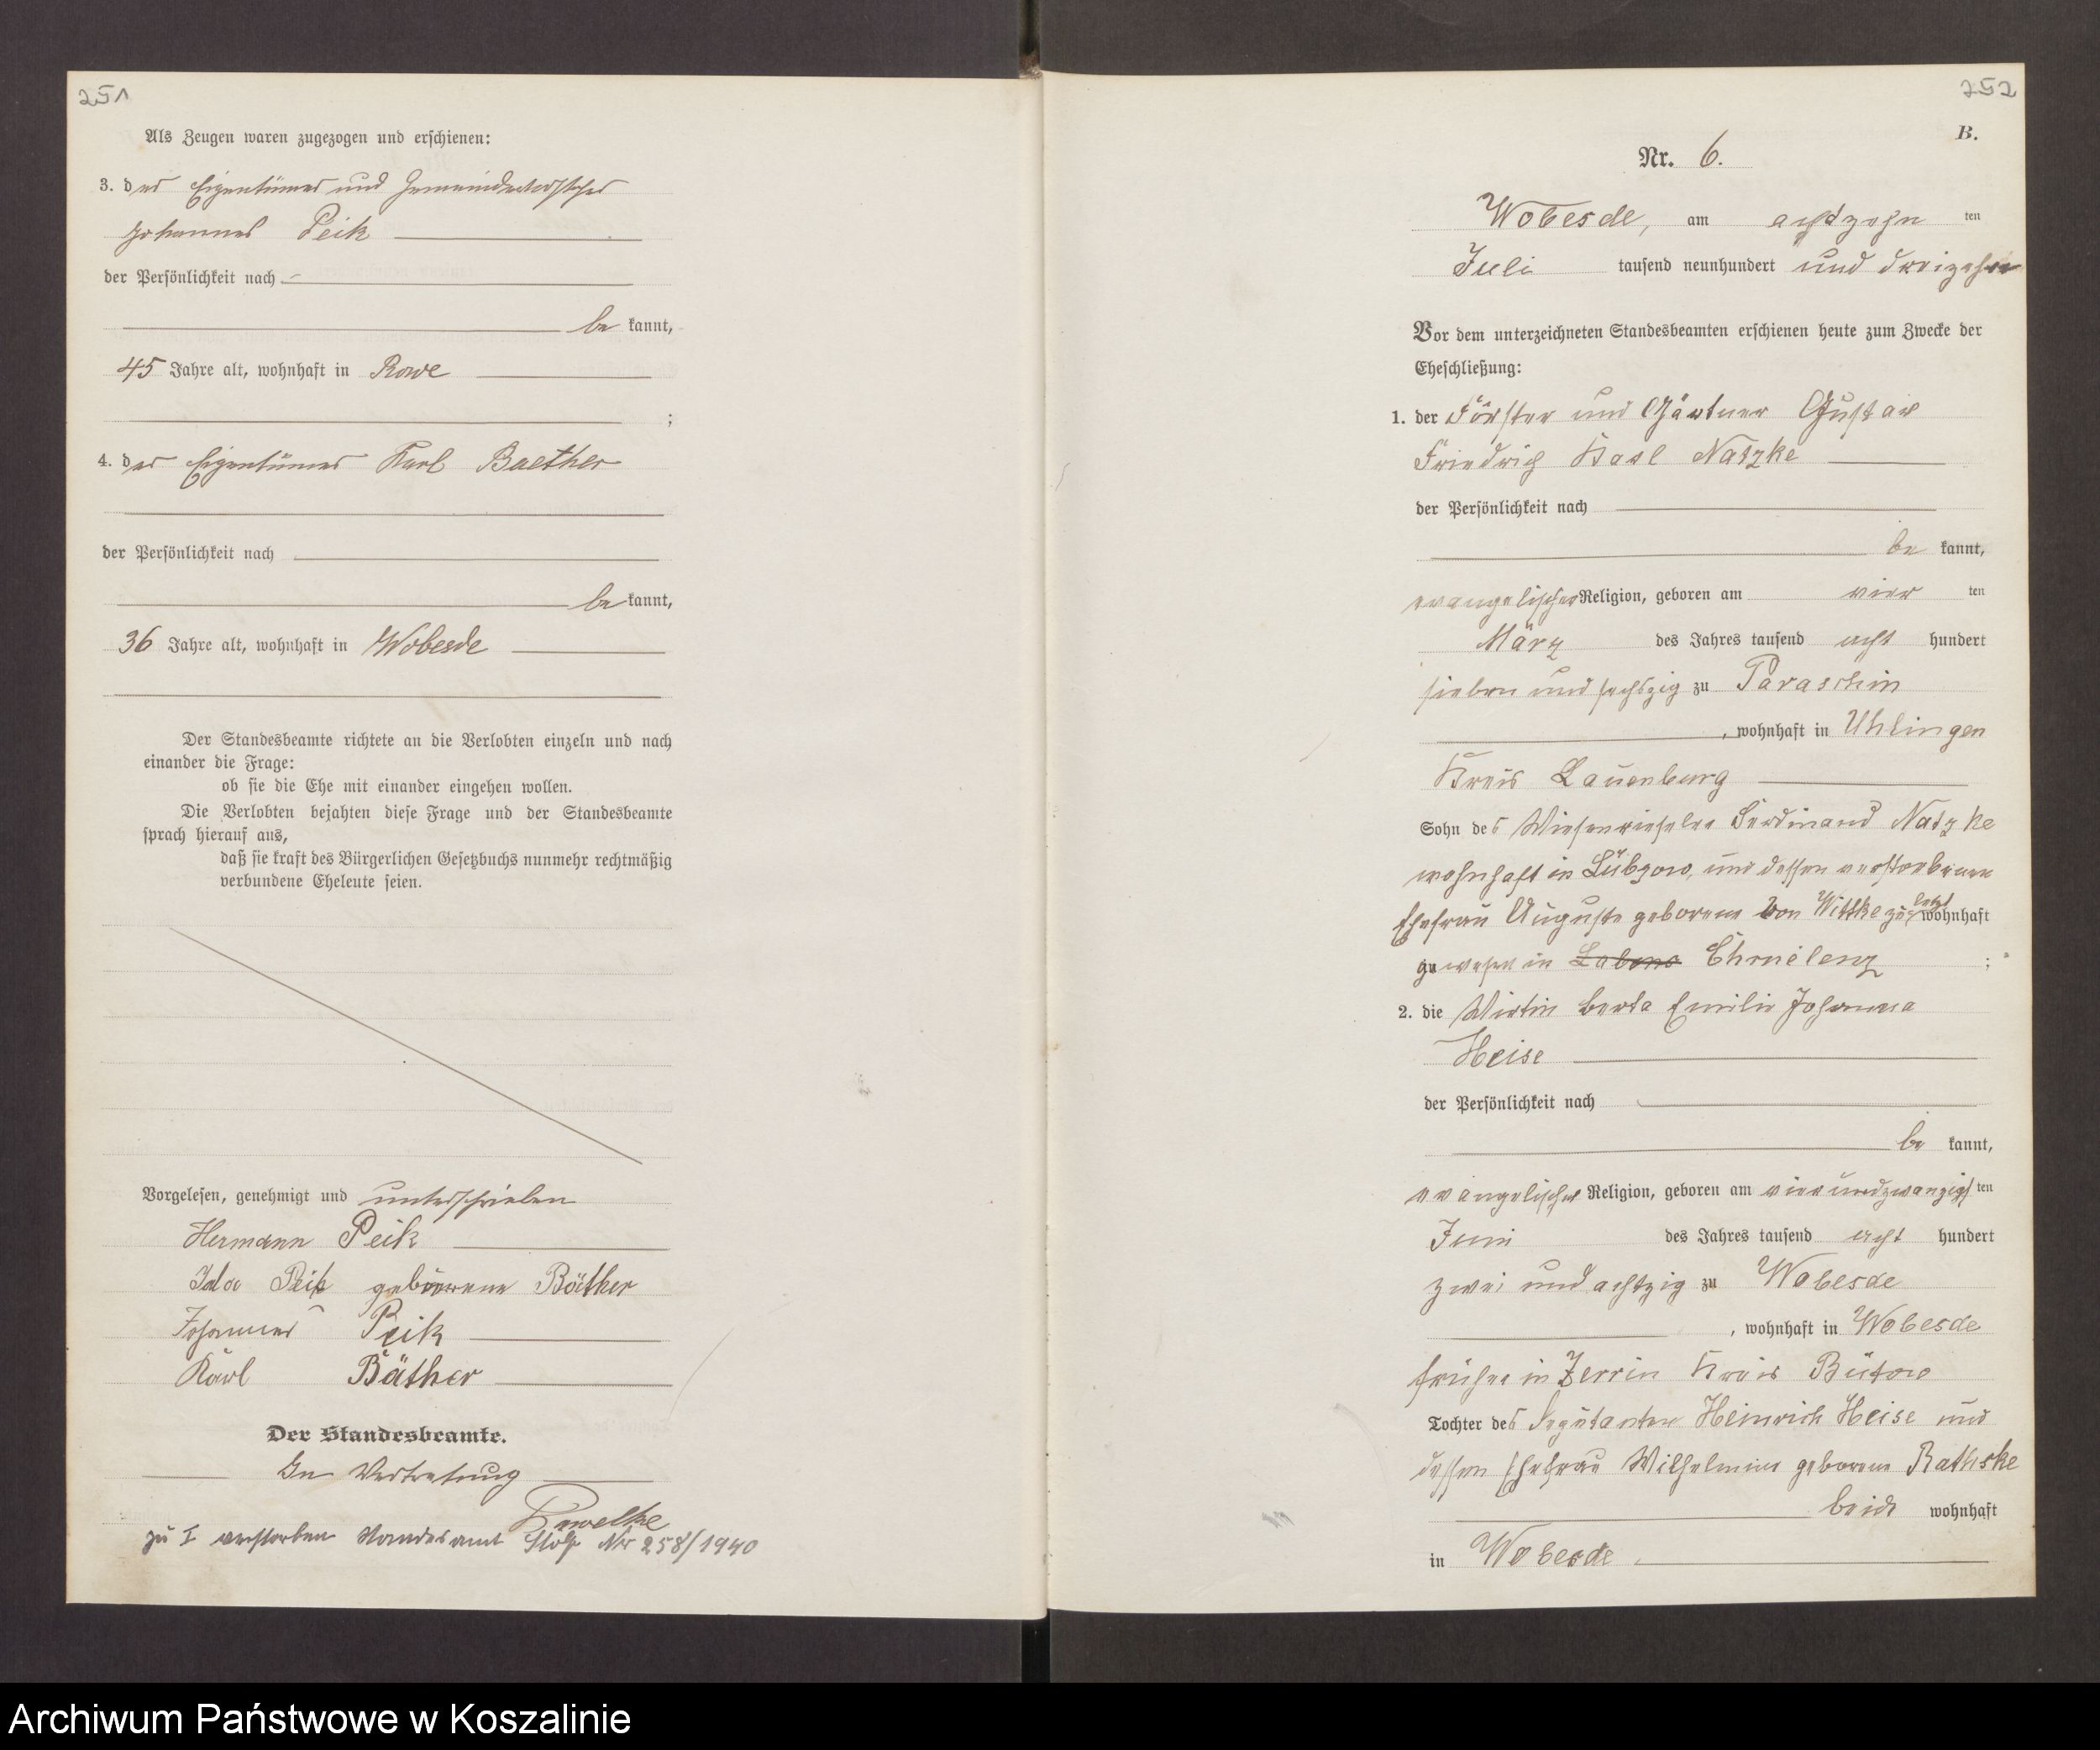 251
Als Zeugen waren zugezogen und erschienen:
3. der Eigentümer und Gemeindevorsteher
Johannes Peik
der Persönlichkeit nach
be kannt,
45 Jahre alt, wohnhaft in Rowe
;
4. der Eigentümer Karl Baether
der Persönlichkeit nach
be kannt,
36 Jahre alt, wohnhaft in Wobesde
Der Standesbeamte richtete an die Verlobten einzeln und nach
einander die Frage:
ob sie die Ehe mit einander eingehen wollen.
Die Verlobten bejahten diese Frage und der Standesbeamte
sprach hierauf aus,
daß sie kraft des Bürgerlichen Gesetzbuchs nunmehr rechtmäßig
verbundene Eheleute seien.
Vorgelesen, genehmigt und unterschrieben
Hermann Peik
Ida Peik geborene Bäther
Johannes Peik
Karl Bäther
Der Standesbeamte.
In Vertretung
zu I verstorben Standesamt Stolp Nr 258/1940
252
B.
Nr. 6.
Wobesde, am achtzehn ten
Juli tausend neunhundert und dreizehn
Vor dem unterzeichneten Standesbeamten erschienen heute zum Zwecke der
Eheschließung:
1. der Förster und Gärtner Gustav
Friedrich Karl Natzke
der Persönlichkeit nach
be kannt,
evangelischer Religion, geboren am vier ten
März des Jahres tausend acht hundert
sieben und sechszig zu Paraschin
, wohnhaft in Uhlingen
Kreis Lauenburg
Sohn des Wiesenrieseler Ferdinand Natzke
wohnhaft in Lübzow, und dessen verstorbenen
Ehefrau Auguste geborene von Wittke zuletzt wohnhaft
gewesen in Chmelenz ;
2. die Wirtin Berta Emilie Johanna
Heise
der Persönlichkeit nach
be kannt,
evangelischer Religion, geboren am vierundzwanzigsten
Juni des Jahres tausend acht hundert
zwei und achtzig zu Wobesde
, wohnhaft in Wobesde
früher in Zerrin Kreis Bütow
Tochter des Deputanten Heinrich Heise und
dessen Ehefrau Wilhelmine geborene Rathske
beide wohnhaft
in Wobesde
Archiwum Państwowe w Koszalinie